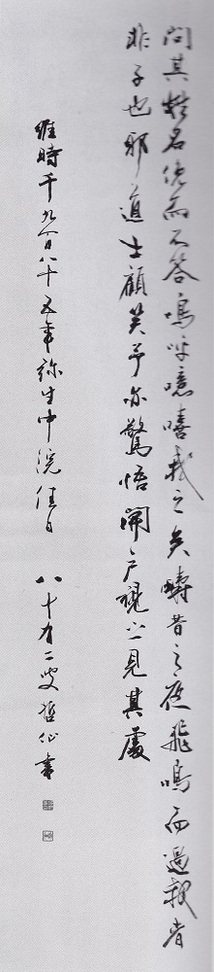 問其姓名俛而不答嗚呼噫嘻我之矣疇昔之夜飛鳴而過我者
非子也邪道士顧笑予亦驚悟開戶視之不見其處
維時千九百八十五年弥生中浣佳日 八十有二叟哲仙書